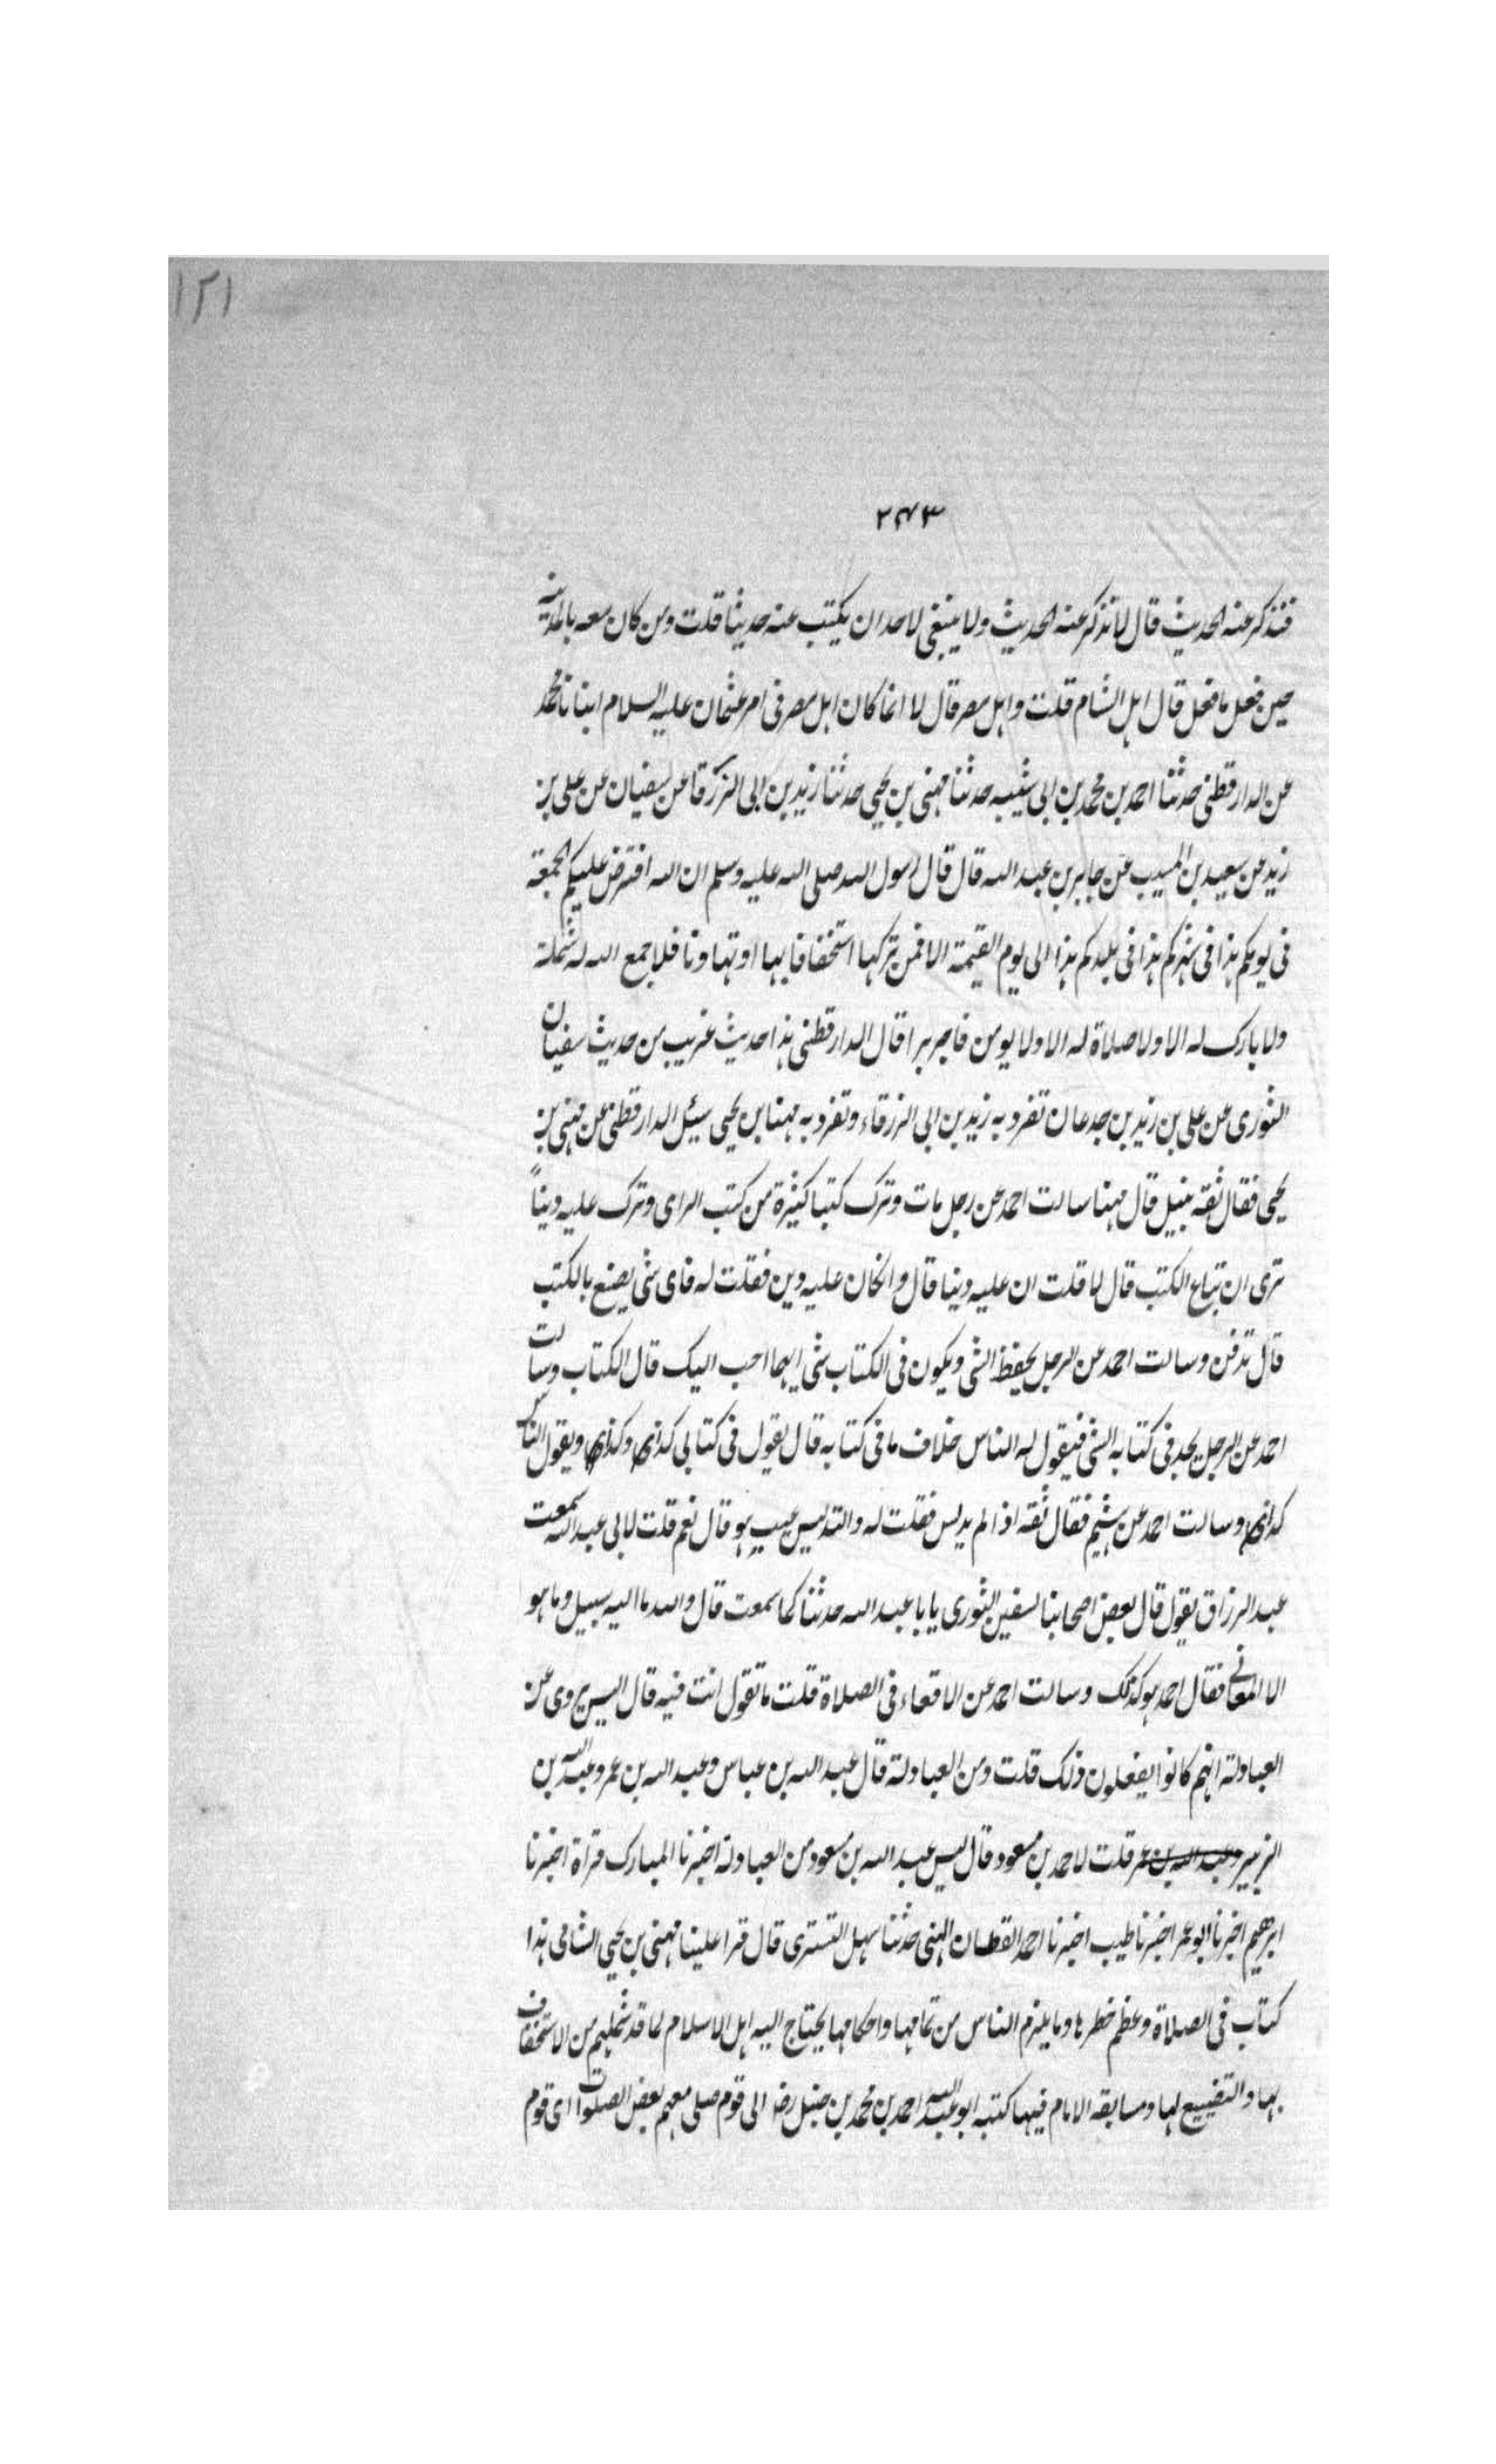 ١٢١
٢٤٣
فنذكر عنه الحديث قال لا نذكر عنه الحديث ولا ينبغي لاحد ان يكتب عنه حديثا قلت ومن كان معه بالمدينة
حين فعل ما فعل قال اهل الشام قلت واهل مصر قال لا انما كان اهل مصر في امر عثمان عليه السلام انبانا محمد
عن الدارقطني حدثنا احمد بن محمد بن ابي شيبه حدثنا مهنى بن يحيى حدثنا زيد بن ابي الزرقا عن سفيان عن علي بن
زيد عن سعيد بن المسيب عن جابر بن عبد الله قال قال رسول الله صلى الله عليه وسلم ان الله افترض عليكم الجمعة
في يومكم هذا في شهركم هذا في بلدكم هذا الى يوم القيمة الا فمن تركها استخفافا بها او تهاونا فلا جمع الله له شمله
ولا بارك له الا ولا صلاة له الا ولا يومن فاجر برا قال الدارقطني هذا حديث غريب من حديث سفيان
الثوري عن علي بن زيد بن جدعان تفرد به زيد بن ابي الزرقاء وتفرد به مهنا بن يحيى سئيل الدارقطني عن مهنى بن
يحيى فقال ثقه نبيل قال مهنا سالت احمد عن رجل مات وترك كتبا كثيرة من كتب الراى وترك عليه ديناً
ترى ان تباع الكتب قال لا قلت ان عليه دينا قال وان كان عليه دين فقلت له فاى شئ يصنع بالكتب
قال تدفن وسالت احمد عن الرجل يحفظ الشئ ويكون في الكتاب شئ ايهما احب اليك قال الكتاب وسالت
احمد عن الرجل يجد في كتابه الشئ فيقول له الناس خلاف ما في كتابه قال يقول في كتابي كذا وكذا ويقول الناس
كذا وسالت احمد عن هشيم فقال ثقه اذا لم يدلس فقلت له والتدليس عيب هو قال نعم قلت لابي عبد الله سمعت
عبد الرزاق يقول قال بعض اصحابنا لسفين الثوري يا با عبد الله حدثنا كما سمعت قال والله ما اليه سبيل وما هو
الا المعاني فقال احمد هو كذلك وسالت احمد عن الاقعاء في الصلاة قلت ما تقول انت فيه قال اليس يروى عن
العبادلة انهم كانوا يفعلون ذلك قلت ومن العبادلة قال عبد الله بن عباس وعبد الله بن عمر وعبد الله بن
الزبير وعبد الله بن عمر قلت لاحمد بن مسعود قال ليس عبد الله بن مسعود من العبادلة اخبرنا المبارك قراة اخبرنا
ابرهيم اخبرنا ابو عمر اخبرنا طيب اخبرنا احمد القطان الهني حدثنا سهل التستري قال قرا علينا مهنى بن يحيى الشامي هذا
كتاب في الصلاة وعظم خطرها وما يلزم الناس من تمامها واحكامها يحتاج اليه اهل الاسلام لما قد شملهم من الاستخفاف
بها والتضييع لها ومسابقه الامام فيها كتبه ابو عبد الله احمد بن محمد بن حنبل رضـ الى قوم صلى معهم بعض الصلوات اى قوم